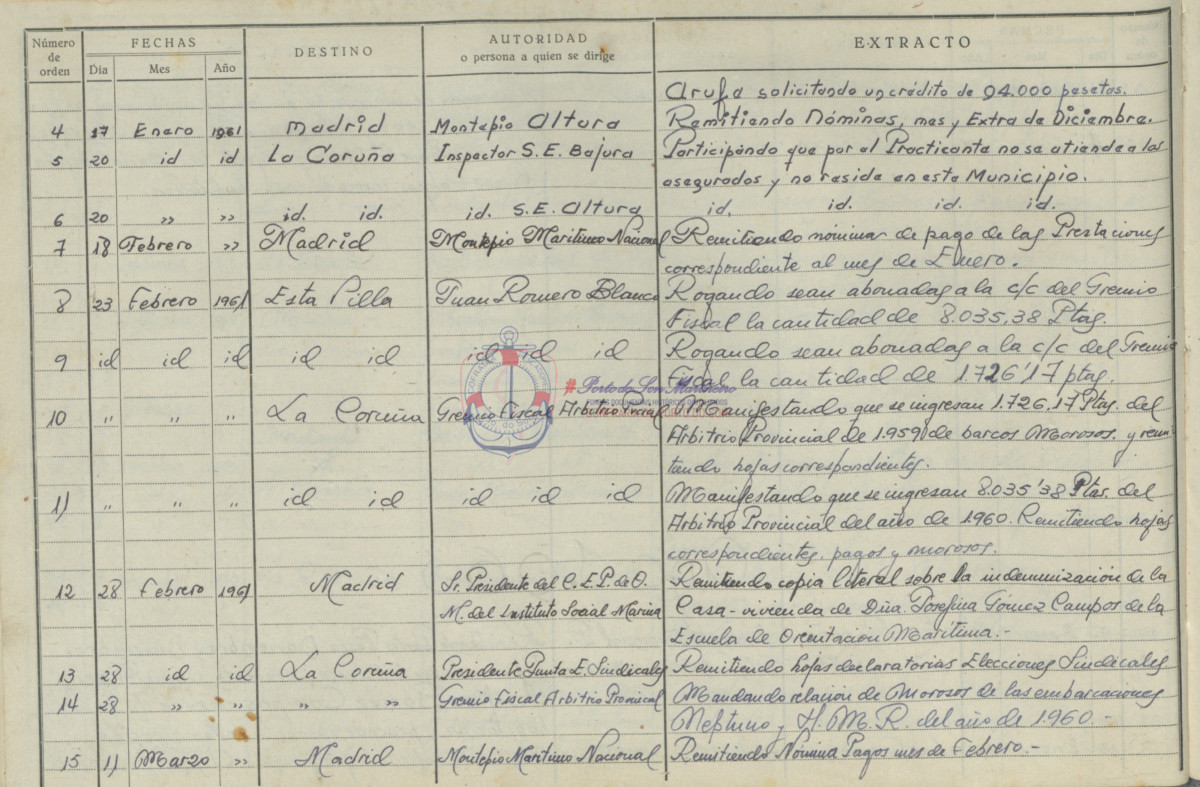 Número de orden
FECHAS
Día Mes Año
DESTINO
AUTORIDAD
o persona a quien se dirige
EXTRACTO
solicitando un crédito de 94.000 pesetas.
4 17 Enero 1961 Madrid Montepio Altura Remitiendo Nóminas, mes y Extra de Diciembre.
5 20 id id La Coruña Inspector S.E. Bajura Participando que por el Practicante no se atiende a los
asegurados y no reside en este Municipio.
6 20 " " id. id. id. S.E. Altura id. id. id. id.
7 18 Febrero " Madrid Montepio Maritimo Nacional Remitiendo nóminas de pago de las Prestaciones
correspondiente al mes de Enero.
8 23 Febrero 1961 Esta Villa Juan Romero Blanco Rogando sean abonadas a la c/c del Gremio
Fiscal la cantidad de 8.035,38 Ptas.
9 id id id id id id id id Rogando sean abonadas a la c/c del Gremio
Fiscal la cantidad de 1.726'17 ptas.
10 " " " La Coruña Gremio Fiscal Arbitrio Manifestando que se ingresan 1.726,17 Ptas. del
Arbitrio Provincial de 1.959 de barcos Morosos. y remi-
tiendo hojas correspondientes.
11 " " " id id id id id Manifestando que se ingresan 8.035'38 Ptas. del
Arbitrio Provincial del año de 1.960. Remitiendo hojas
correspondientes, pagos y morosos.
12 28 Febrero 1961 Madrid Sr. Presidente del C.E.P. de O. Remitiendo copia literal sobre la indemnización de la
M. del Instituto Social Marina Casa-vivienda de Dña. Josefina Gómez Campos de la
Escuela de Orientación Marítima.-
13 28 id id La Coruña Presidente Junta E. Sindicales Remitiendo hojas declaratorias Elecciones Sindicales
14 28 " " " " Gremio Fiscal Arbitrio Provincial Mandando relación de Morosos de las embarcaciones
Neptuno y H.M.R. del año de 1.960.-
15 11 Marzo " Madrid Montepio Maritimo Nacional Remitiendo Nómina Pagos mes de Febrero.-
# Porto do Son Mariñeiro